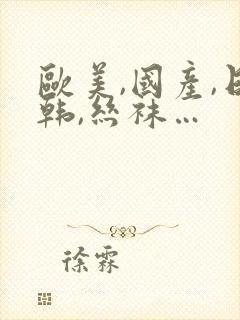 歐美,國產,日
韩,絲袜...
徐霖